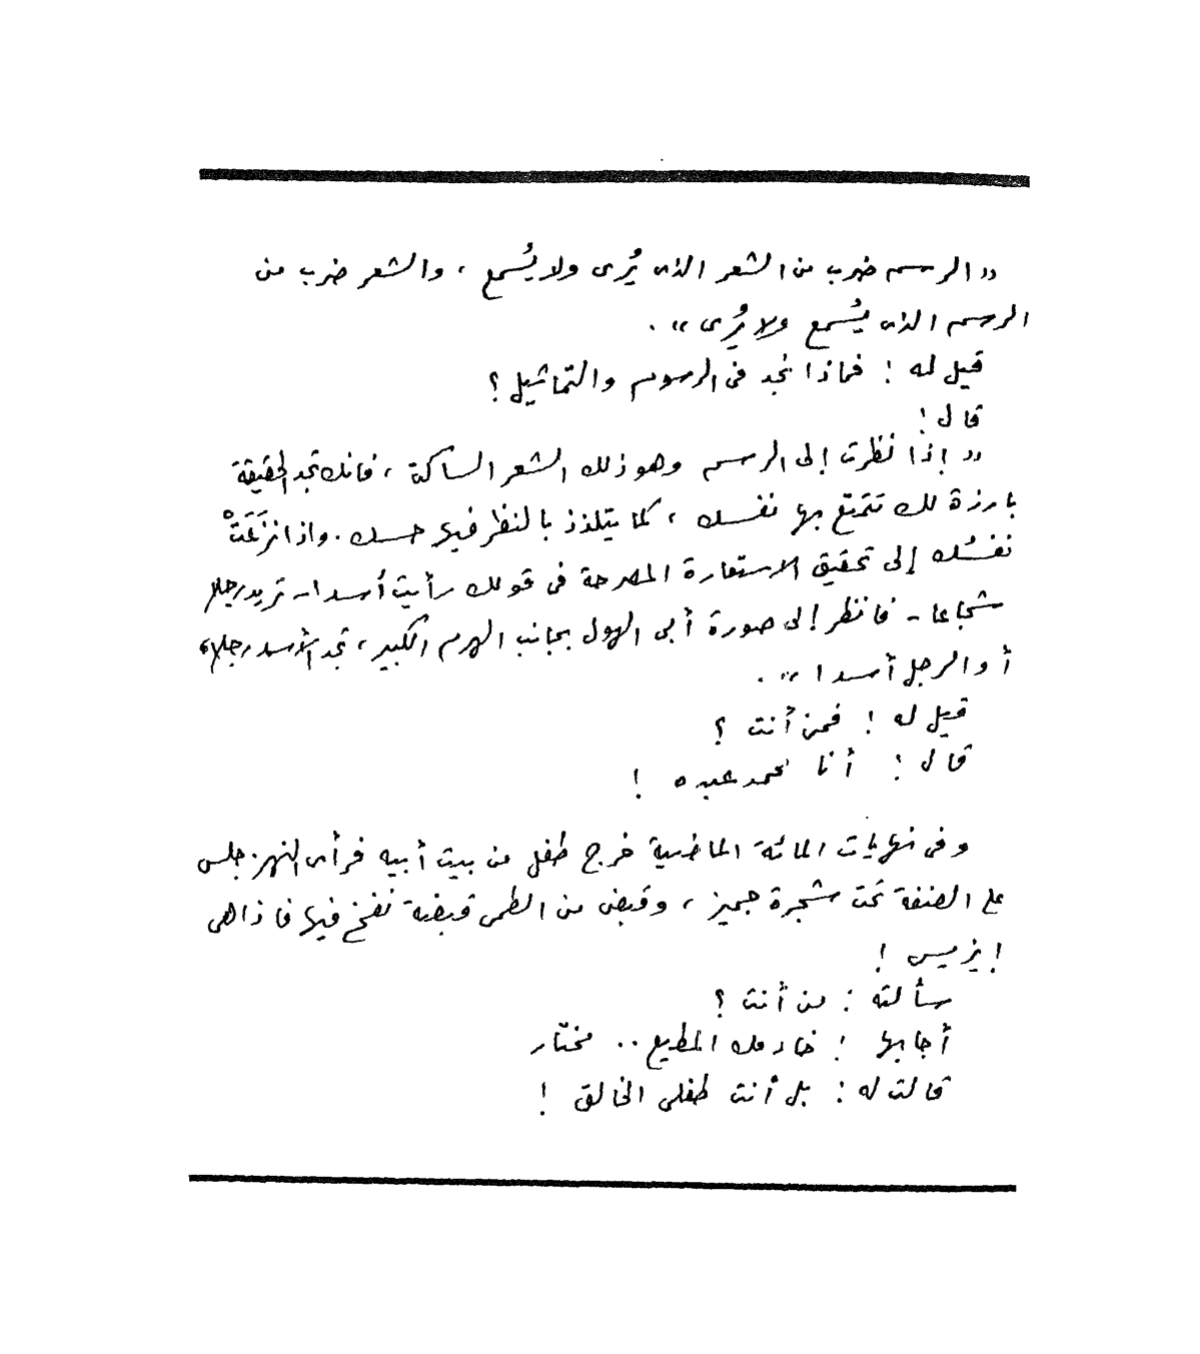 « الرسم ضرب من الشعر الذى يُرى ولا يُسمع ، والشعر ضرب من
الرسم الذى يُسمع ولا يُرى » .
قيل له : فماذا نجد فى الرسوم والتماثيل ؟
قال :
« إذا نظرت إلى الرسم وهو ذلك الشعر الساكت ، فانك تجد الحقيقة
بارزة لك تتمتع بها نفسك ، كما يتلذذ بالنظر فيها حسك . واذا نزعَتْ
نفسُك إلى تحقيق الاستعارة المصرحة فى قولك رأيت أسدا - تريد رجلا
شجاعا - فانظر إلى صورة أبى الهول بجانب الهرم الكبير ، تجد الأسد رجلا ،
أو الرجل أسدا » .
قيل له : فمن أنت ؟
قال : أنا محمد عبده !
وفى نهايات المائة الماضية خرج طفل من بيت أبيه فرأى النهر . جلس
على الضفة تحت شجرة جميز ، وقبض من الطمى قبضة نفخ فيها فاذا هى
ايزيس !
سألته : من أنت ؟
أجابها : خادمك المطيع .. مختار
قالت له : بل أنت طفلى الخالق !